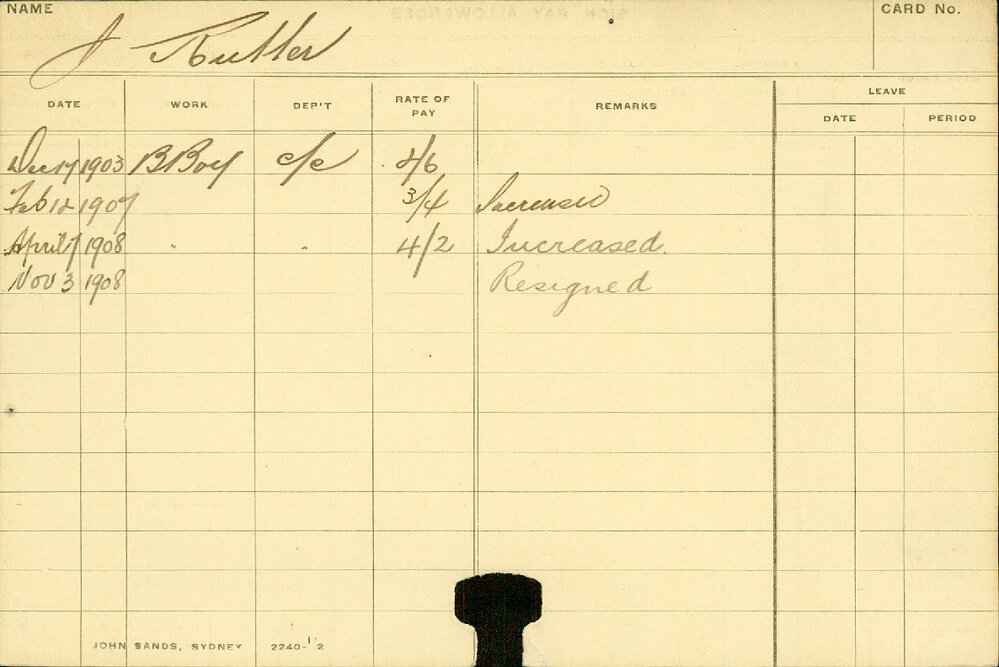 NAME
J Rutter
CARD No.
DATE WORK DEP'T RATE OF PAY REMARKS LEAVE
DATE PERIOD
Dec 17 1903 B Boy c/c
Feb 12 1907 3/4 Increased
April 7 1908 " " 4/2 Increased.
Nov 3 1908 Resigned
JOHN SANDS, SYDNEY 2240-12